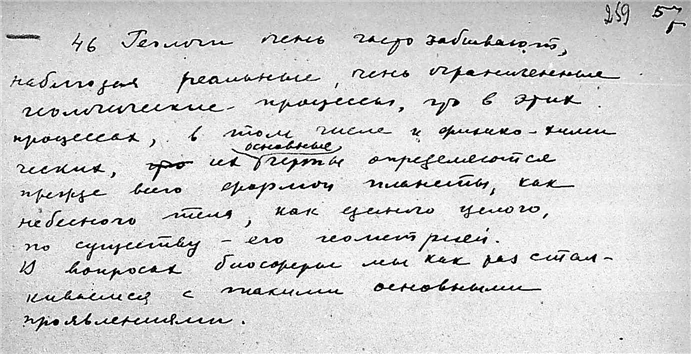 239 57
— 46 Геологи очень часто забывают,
наблюдая реальные, очень ограниченные
геологические процессы, что в этих
процессах, в том числе и физико-хими
основные
ческих, что их черты определяются
прежде всего формой планеты, как
небесного тела, как единого целого,
по существу – его геометрией.
В вопросах биосферы мы как раз стал-
киваемся с такими основными
проявлениями.